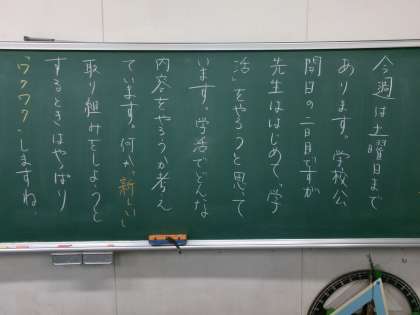 今週は土曜日まで
あります。学校公
開日の二日目ですが
先生ははじめて、「学
活」をやろうと思って
います。学活でどんな
内容をやろうか考え
ています。何か、新しい
取り組みをしようと
するときはやっぱり
「ワクワク」しますね。